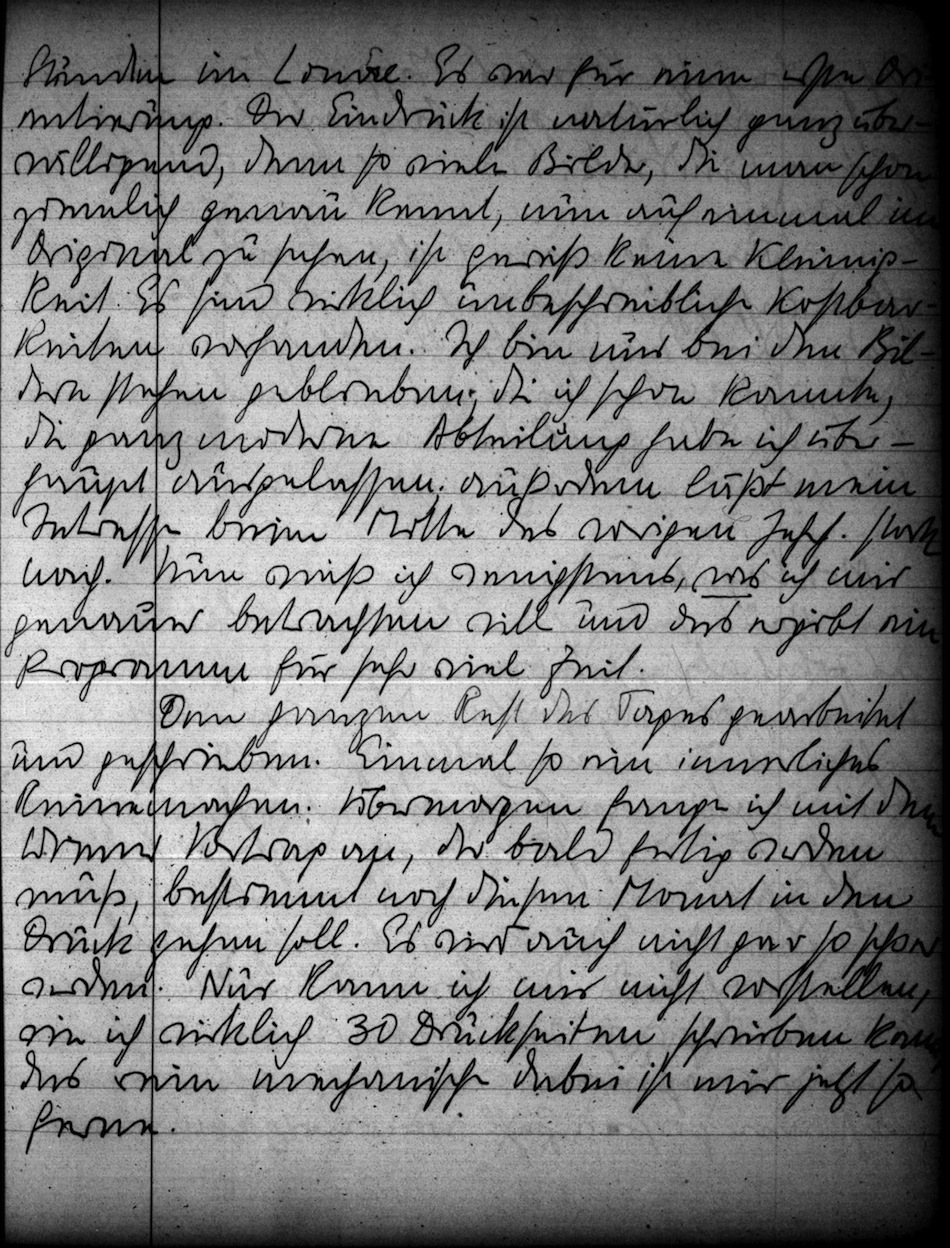 Stunden im Louvre. Es war für einen erste Ori-
entierung. Der Eindruck ist natürlich ganz über-
wältigend, denn so viele Bilder, die man schon
ziemlich genau kennt, nun auf einmal im
Original zu sehen, ist gewiß keine Kleinig-
keit. Es sind wirklich unbeschreibliche Kostbar-
keiten vorhanden. Ich bin nur bei den Bil-
dern stehen geblieben, die ich schon kannte,
die ganz moderne Abteilung habe ich über-
haupt ausgelassen; außerdem läßt mein
Interesse beim Mitte des vorigen Jahrh. stark
nach. Nun weiß ich wenigstens, was ich mir
genauer betrachten will und das ergibt ein
Programm für sehr viel Zeit.
Den ganzen Rest des Tages gearbeitet
und geschrieben. Einmal so ein innerliches
Reinemachen. Übermorgen fange ich mit dem
Wiener Vortrag an, der bald fertig werden
muß, bestimmt noch diesen Monat in den
Druck gehen soll. Es wird auch nicht gar so schwer
werden. Nur kann ich mir nicht vorstellen,
wie ich wirklich 30 Druckseiten schreiben kann,
das rein mechanische dabei ist mir jetzt so
ferne.